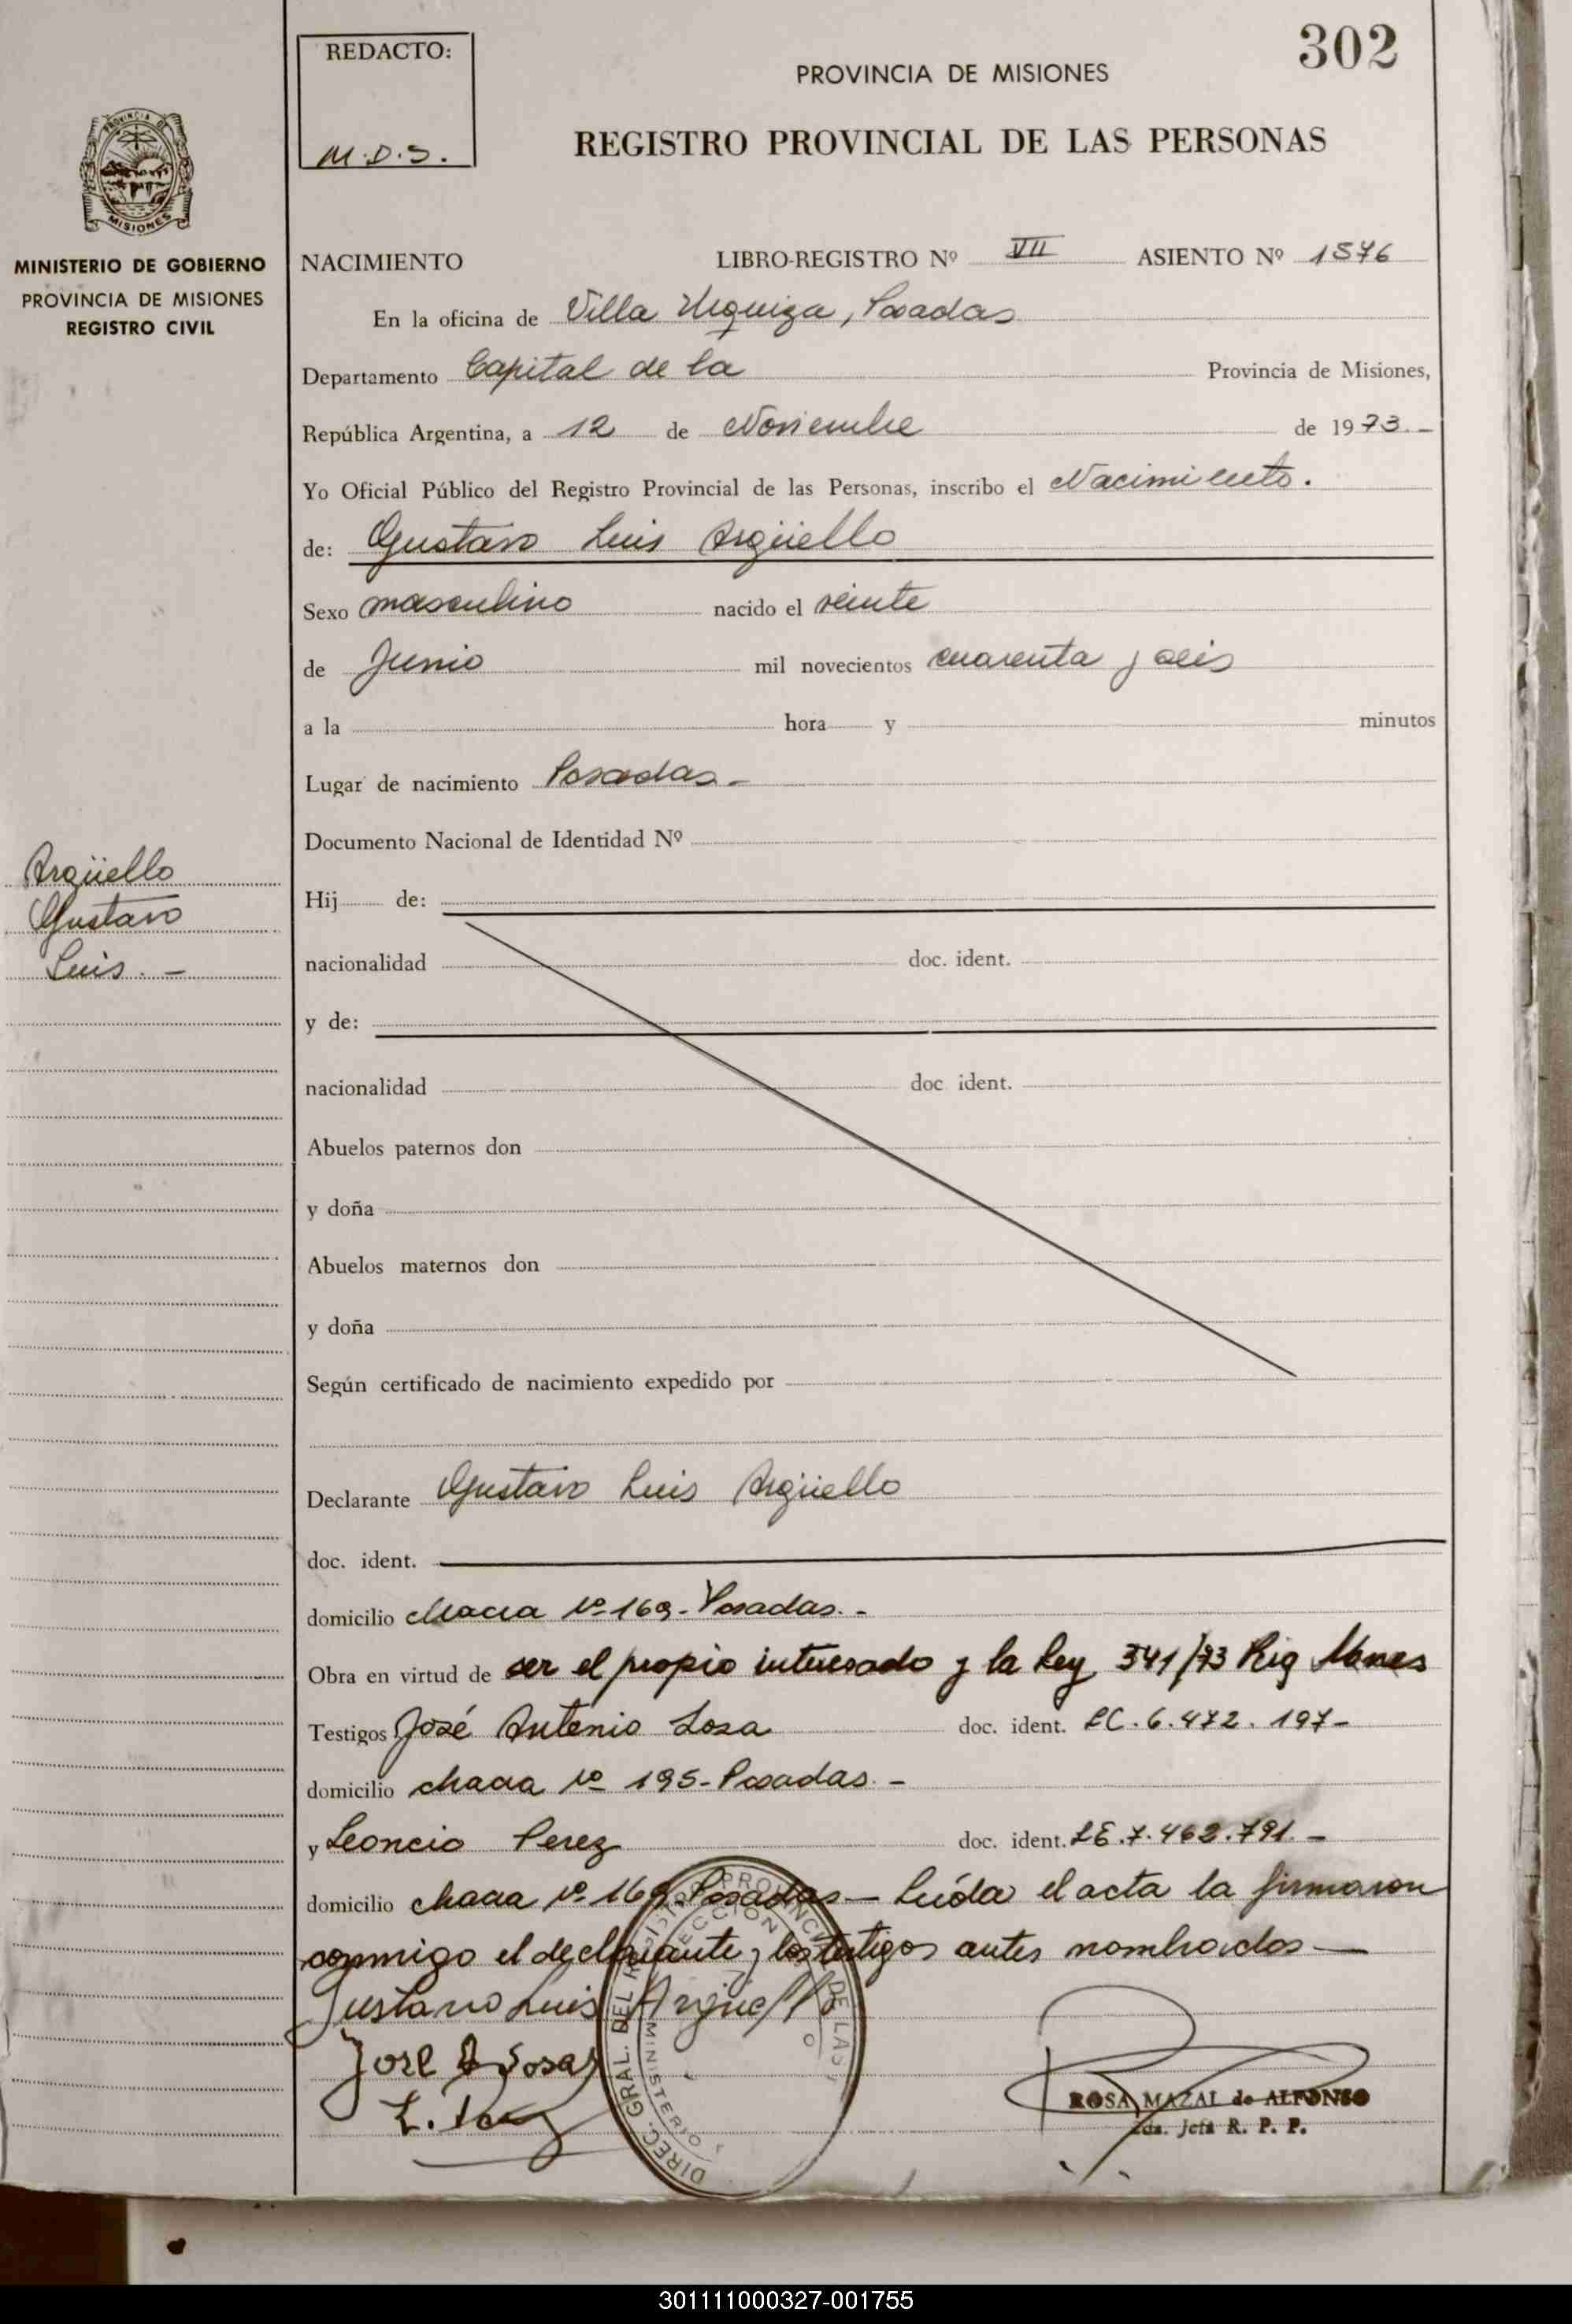 302
REDACTO:
M.D.S.
PROVINCIA DE MISIONES
REGISTRO PROVINCIAL DE LAS PERSONAS
PROVINCIA DE
MISIONES
MINISTERIO DE GOBIERNO
PROVINCIA DE MISIONES
REGISTRO CIVIL
NACIMIENTO LIBRO-REGISTRO Nº VII ASIENTO Nº 1576
En la oficina de Villa Urquiza, Posadas
Departamento Capital de la Provincia de Misiones,
República Argentina, a 12 de Noviembre de 1973.-
Yo Oficial Público del Registro Provincial de las Personas, inscribo el Nacimiento.
de: Gustavo Luis Argüello
Sexo masculino nacido el veinte
de Junio mil novecientos cuarenta y seis
a la hora y minutos
Lugar de nacimiento Posadas -
Documento Nacional de Identidad Nº
Argüello
Gustavo
Luis. -
Hij de:
nacionalidad doc. ident.
y de:
nacionalidad doc ident.
Abuelos paternos don
y doña
Abuelos maternos don
y doña
Según certificado de nacimiento expedido por
Declarante Gustavo Luis Argüello
doc. ident.
domicilio chacra Nº 169 - Posadas. -
Obra en virtud de ser el propio interesado y la Ley 341/73 Rig Mnes
Testigos José Antonio Sosa doc. ident. LC. 6.472.197-
domicilio chacra Nº 195 - Posadas. -
y Leoncio Perez doc. ident. LE. 7.462.791. -
domicilio chacra Nº 169 Posadas - Leída el acta la firmaron
conmigo el declarante y los testigos antes nombrados -
Gustavo Luis Arguello
Jose A Sosa
L. Perez
DIREC. GRAL. DEL REGISTRO PROVINCIAL DE LAS
MINISTERIO
ROSA MAZAL de ALFONSO
2da. Jefa R. P. P.
301111000327-001755